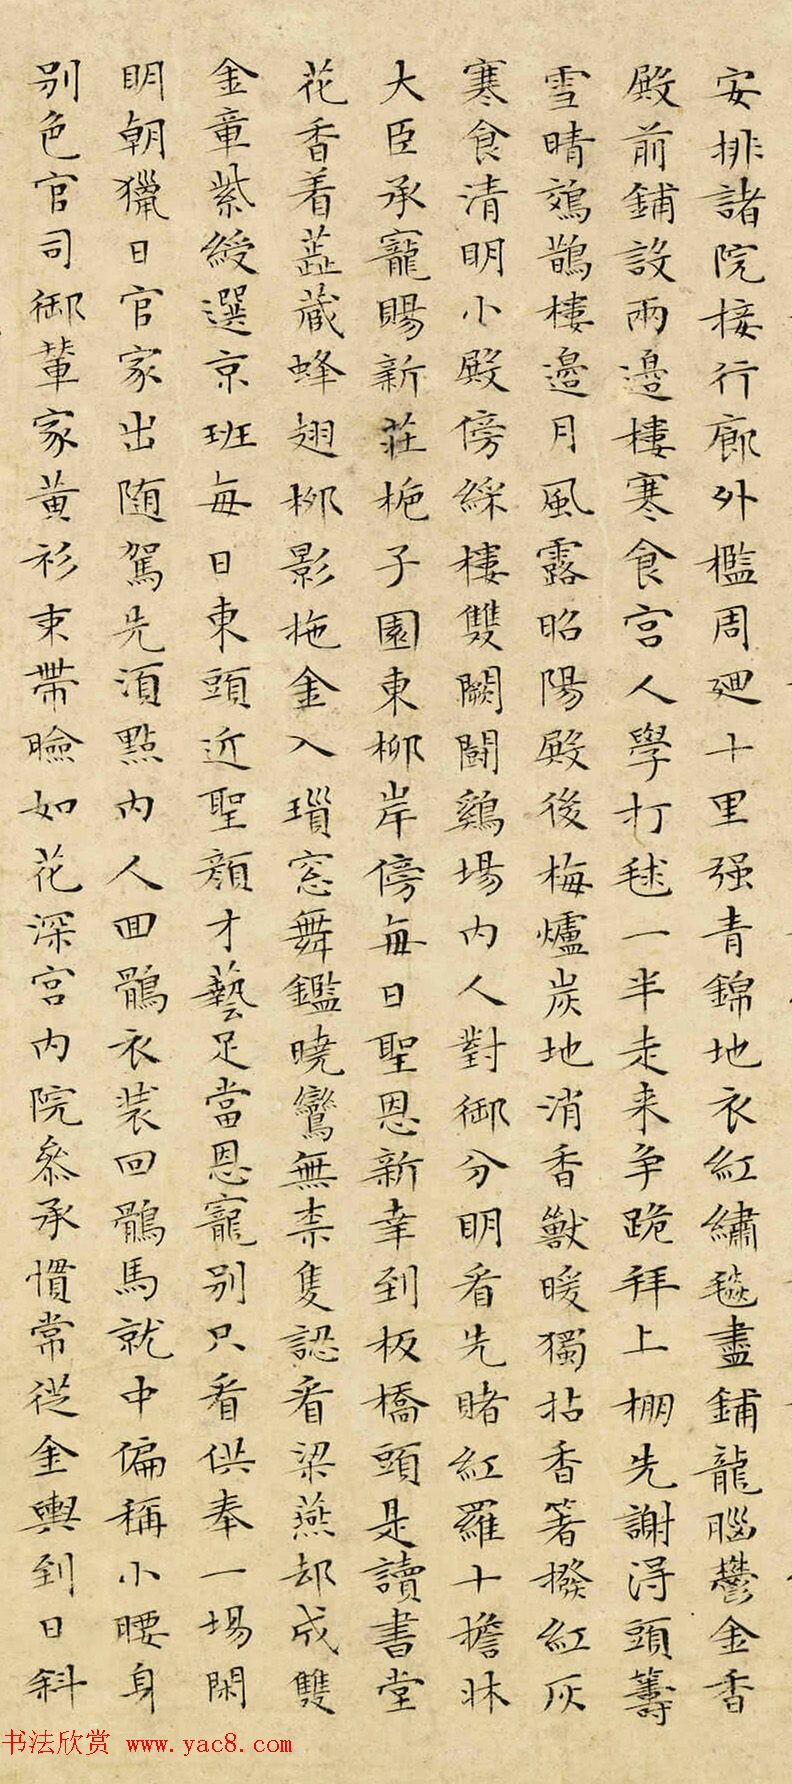 安排諸院接行廊外檻周廻十里强青錦地衣紅繡毯盡鋪龍腦鬱金香
殿前鋪設兩邊樓寒食宫人學打毬一半走来争跪拜上棚先謝得頭籌
雪晴鳷鵲樓邊月風露昭陽殿後梅爐炭地消香獸暖獨拈香箸撥紅灰
寒食清明小殿傍綵樓雙闕鬭鷄場内人對御分明看先賭紅羅十擔牀
大臣承寵賜新莊梔子園東柳岸傍每日聖恩新幸到板橋頭是讀書堂
花香着蕋蔵蜂翅柳影拖金入瑣窓舞鑑曉鸞無柰隻認看梁燕却成雙
金章紫綬選京班每日東頭近聖顔才藝足當恩寵别只看供奉一場閑
明朝獵日官家出随駕先湏點内人回鶻衣装回鶻馬就中偏稱小腰身
别色官司御輦家黄衫束帶瞼如花深宫内院叅承慣常從金輿到日斜
书法欣赏 www.yac8.com